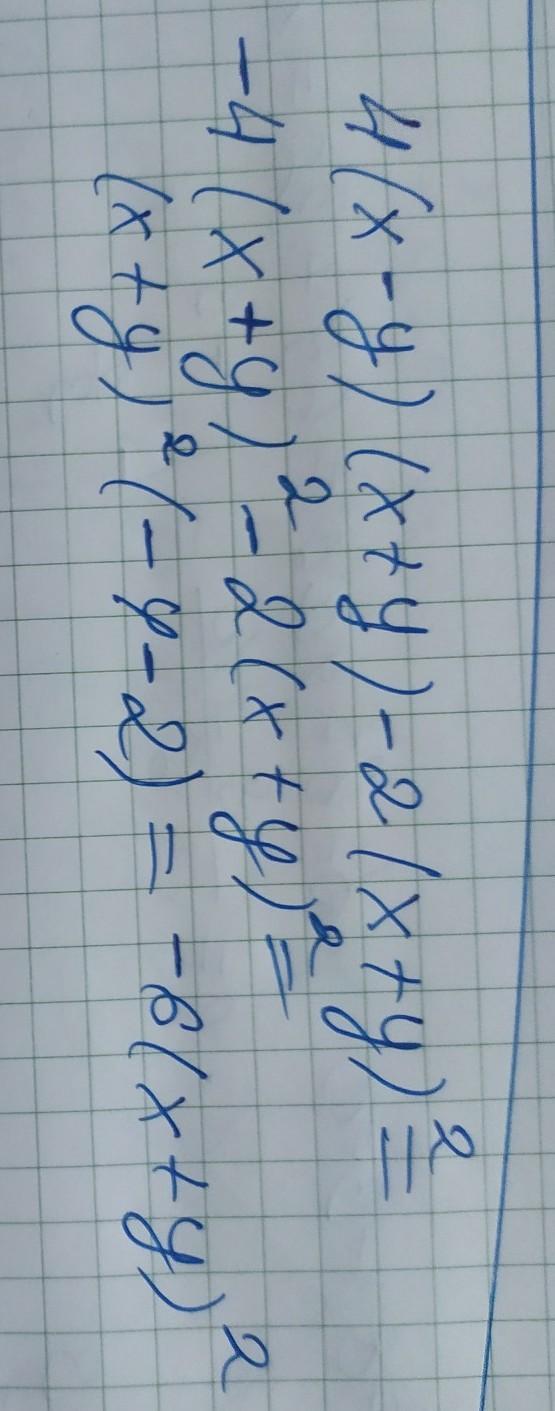 4(x-y)(x+y)-2(x+y)²=
-4(x+y)²-2(x+y)²=
(x+y)²(-4-2)=-6(x+y)²